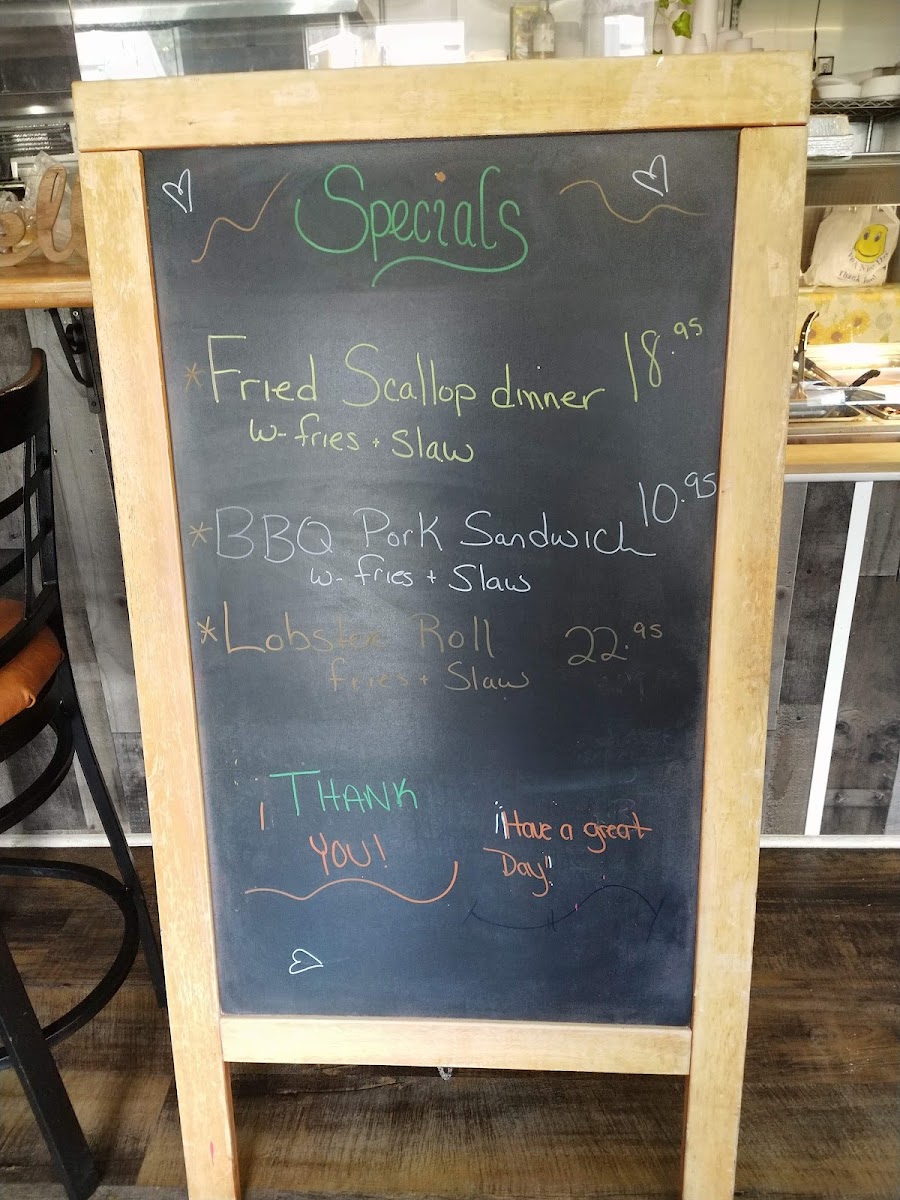 Specials
*Fried Scallop dinner 18.95
w- fries + Slaw
*BBQ Pork Sandwich 10.95
w- fries + Slaw
*Lobster Roll 22.95
fries + Slaw
THANK
YOU!
"Have a great
Day"
Thank You